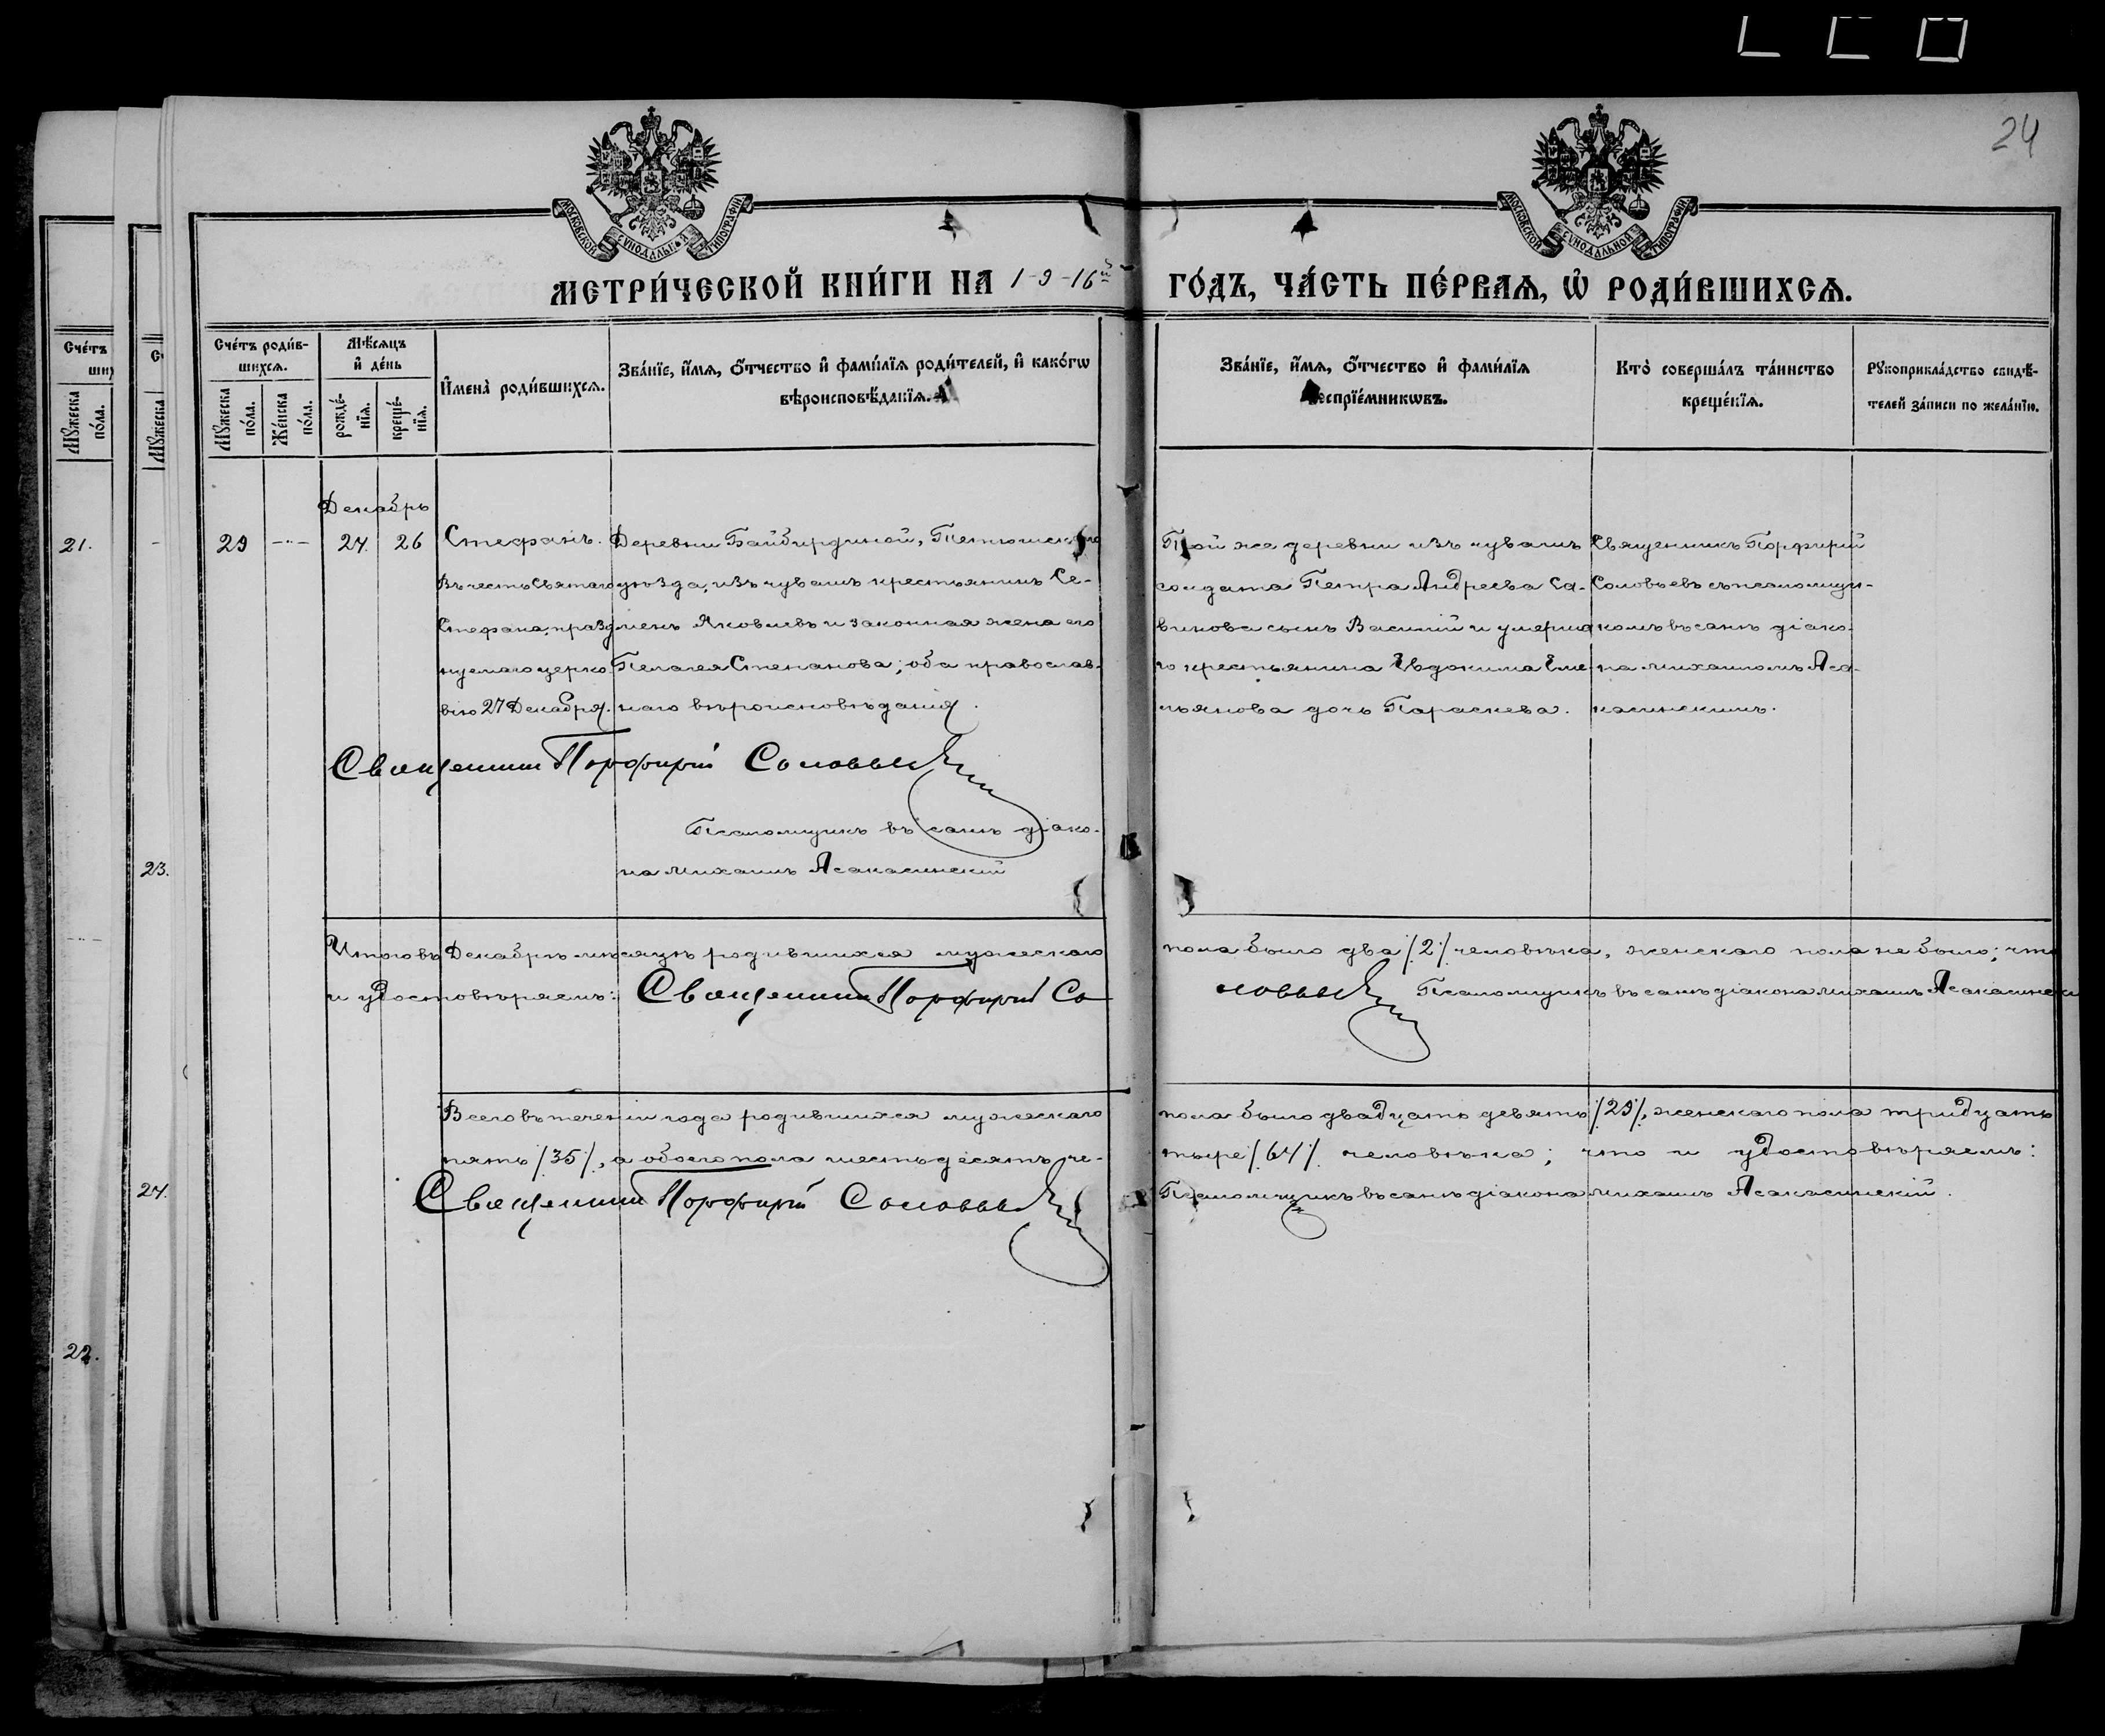 24
МОСКОВСКОЙ СѴНОДАЛЬНОЙ ТИПОГРАФІИ
МОСКОВСКОЙ СѴНОДАЛЬНОЙ ТИПОГРАФІИ
МЕТРИ́ЧЕСКОЙ КНИ́ГИ НА 1916й ГО́ДЪ, ЧА́СТЬ ПЕ́РВАЯ, Ѡ РОДИ́ВШИХСЯ.
Сче́тъ роди́в-
шихся.
Мѣ́сяцъ
и де́нь
Му́жеска по́ла.
Же́нска по́ла.
рожде́-нія.
креще́-нія.
Имена̀ роди́вшихся.
Зва́ніе, и́мя, о́тчество и фами́лія роди́телей, и како́гѡ
вѣроисповѣ́данія.
Зва́ніе, и́мя, о́тчество и фами́лія
воспріе́мникѡвъ.
Кто̀ соверша́лъ та́инство
креще́нія.
Рукоприкла́дство свидѣ́-
телей за́писи по жела́нію.
Декабрь
29 — 24 26
Стефанъ.
Въ честь Святаго
Стефана, праздг
нуемаго церко-
вію 27 Декабря.
Деревни Байбирдиной, Тетюшскаго
уѣзда, изъ чувашъ крестьянинъ Се-
менъ Яковлевъ и законная жена его
Пелагея Степанова; оба православ-
наго вѣроисповѣданія.
Той же деревни изъ чувашъ
солдата Петра Андреева Са-
винова сынъ Василій и умерша
го крестьянина Евдокима Еме-
льянова дочь Параскева.
Священникъ Порфирій
Соловьевъ съ псаломщи-
комъ въ санѣ діако-
на Михаиломъ Аса-
касинскимъ.
Священникъ Порфирій Соловьевъ
Псаломщикъ въ санѣ діако-
на Михаилъ Асакасинскій
Итого въ Декабрѣ мѣсяцѣ родившихся мужескаго пола было два /2/ человѣка, женскаго пола не было; что
и удостовѣряемъ: Священникъ Порфирій Соловьевъ Псаломщикъ въ санѣ діакона Михаилъ Асакасинскій
Всего въ теченіи года родившихся мужескаго пола было двадцать девять /29/, женскаго пола тридцать
пять /35/, а обоего пола шестьдесятъ че-тыре /64/ человѣка; что и удостовѣряемъ:
Священникъ Порфирій Соловьевъ Псаломщикъ въ санѣ діакона Михаилъ Асакасинскій.
Сче́тъ
Му́жеска по́ла.
21.
22.
Му́жеска
23.
24.